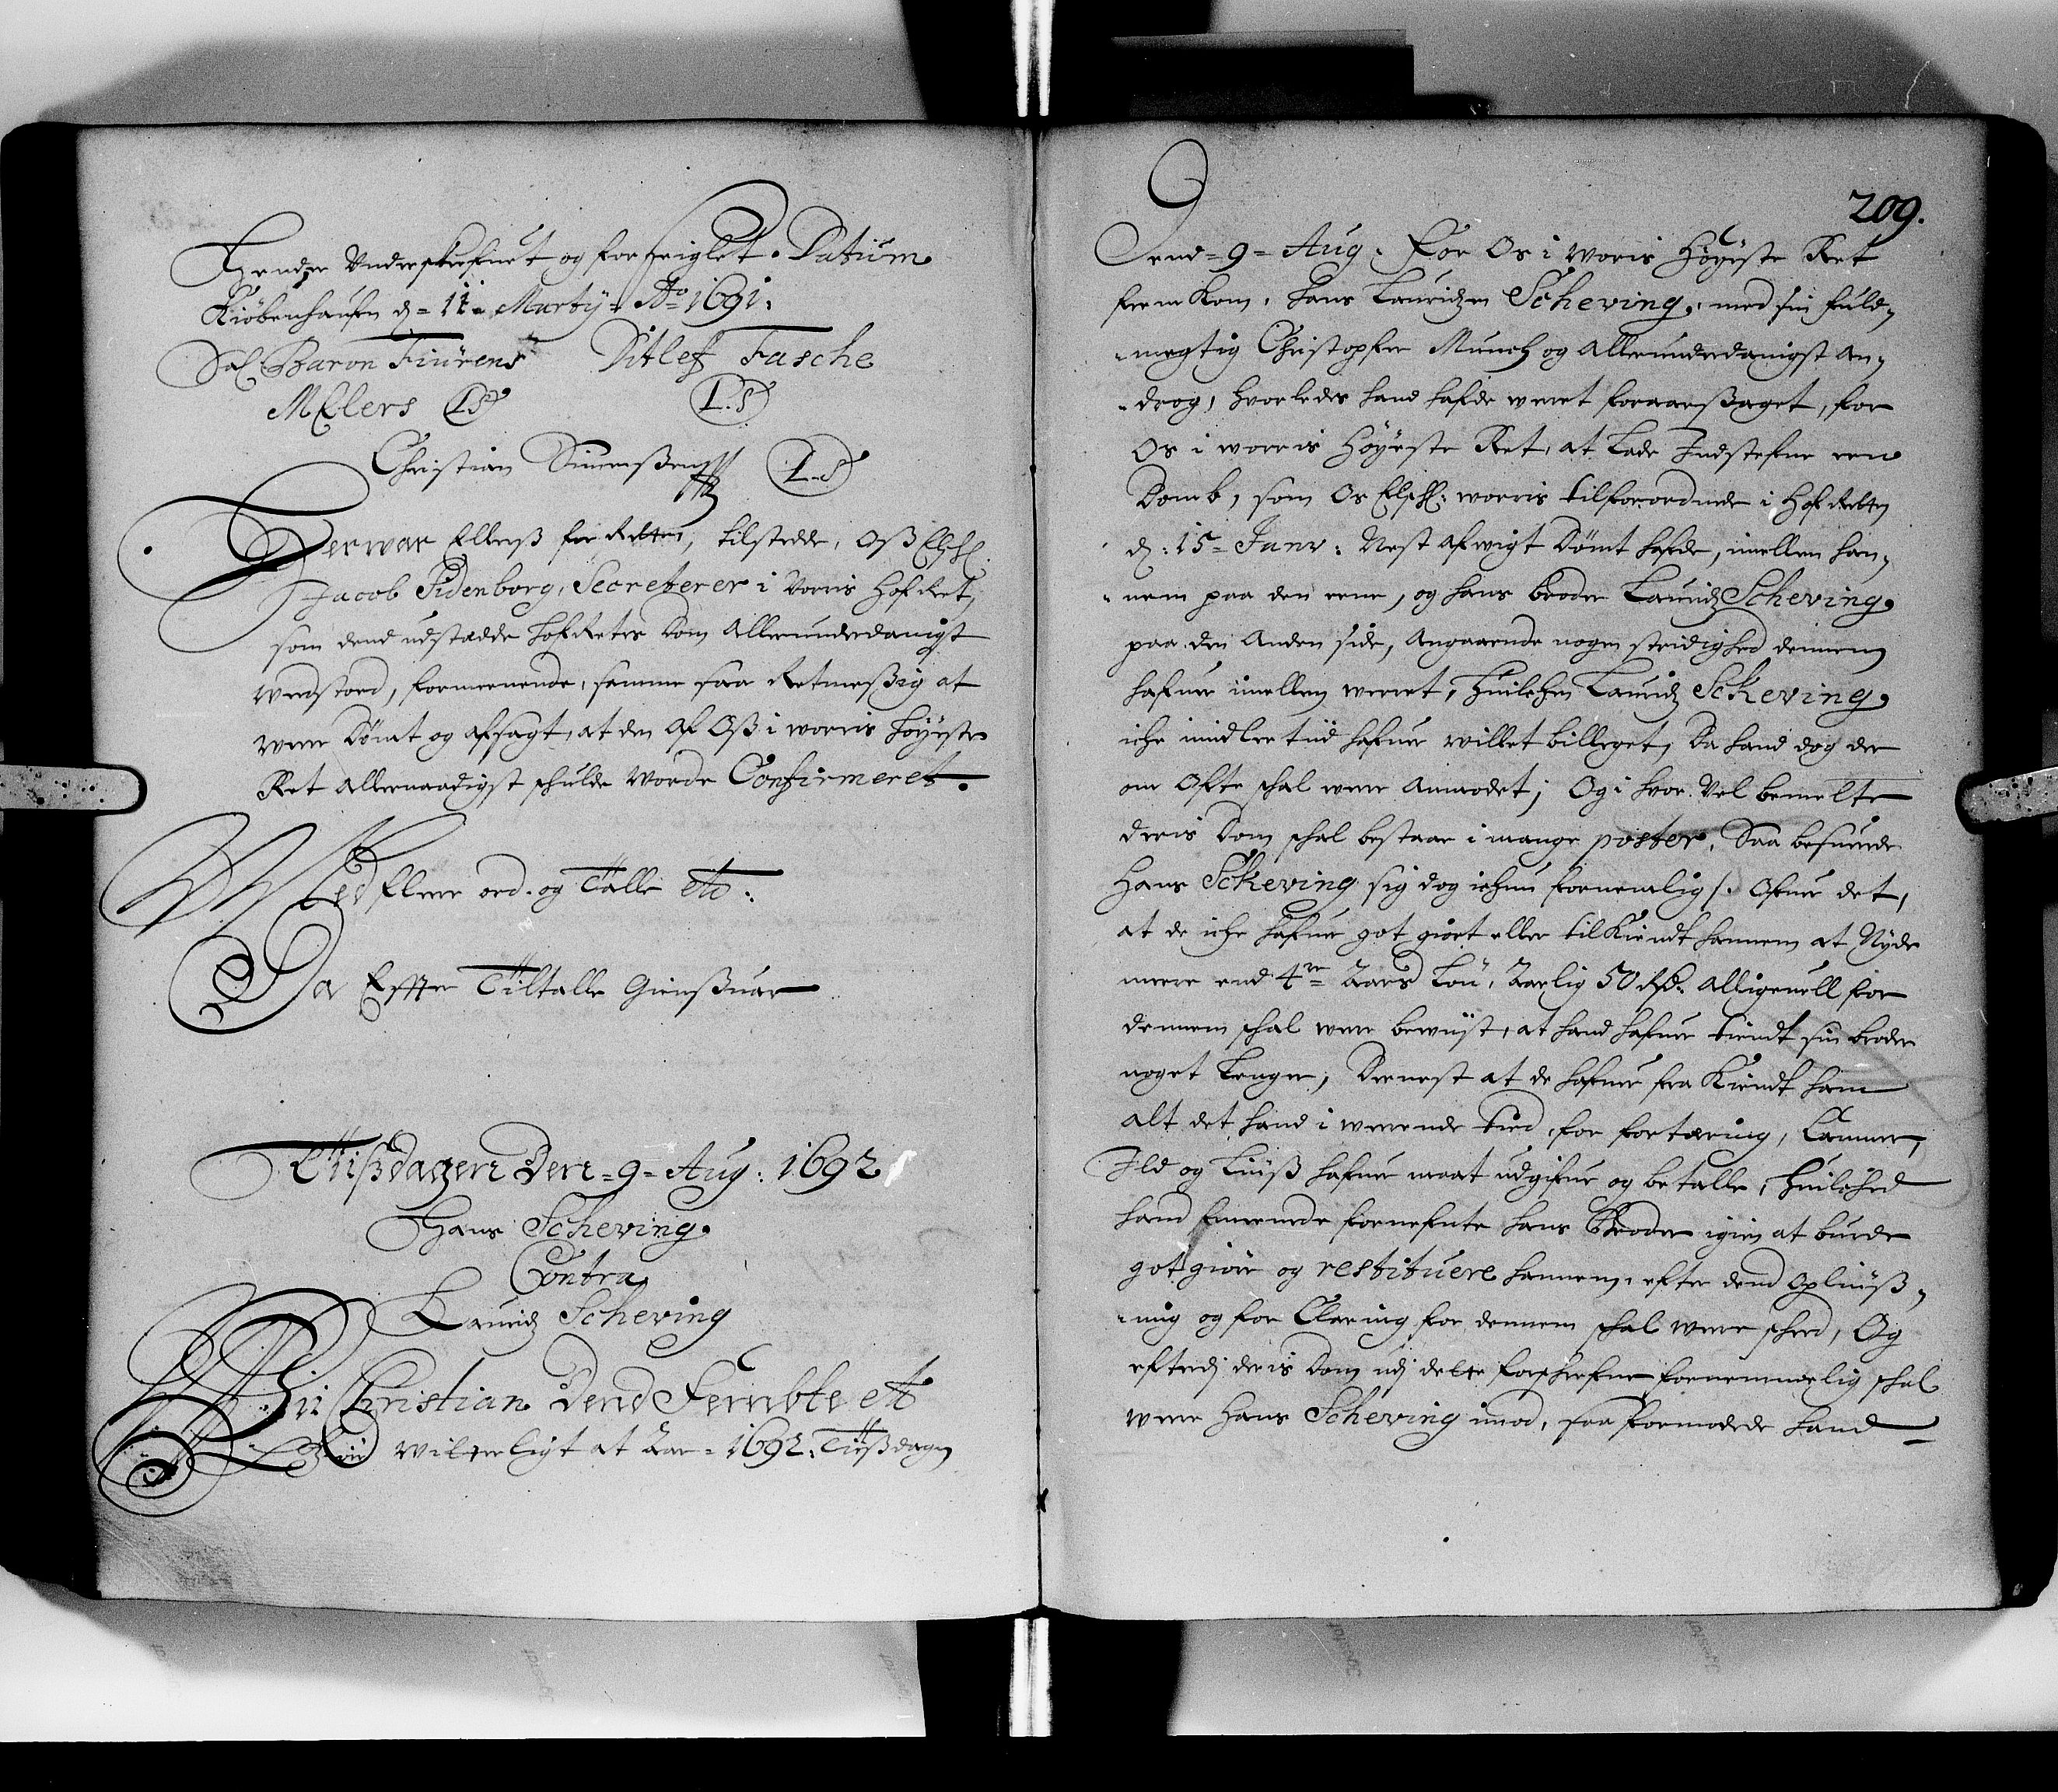 Hender Underskrefuet og forseiglet. Datum
Kiöbenhaufn d = 11 = Marty = Ao 1691:
Sal Baron Fiürens Ditlef Fasche
MElers L.S. L.S
Christian L.S
Der war Ellers for Retten, tilstedde, Oß Elskl.
Jacob Sidenborg, Secreterer i Vorris Hof Ret,
som dend udstædde Hof Retes Dom Allerunderdanigst
wedstoed, formeenende, samme saa Retmeßig at
were Dömt og afsagt, at den af Oß i worris Höyeste
Ret Allernaadigst schulde worde Confirmeret.
Med fleere ord og Talle etc:
Da Effter Tiltalle Giensuar
Tißdagen Den = 9 = Aug: 1692
Hans Scheving.
Contra
Lauridz Scheving
Wii Christian Dend Fembte etc
Giör Witterligt at Aar = 1692. Tißdagen
209.
Dend = 9 = Aug: For Os i Worris Höyeste Ret
frem Kom, Hans Lauridzen Scheving, med sin fuld-
-megtig Christopfer Munch og Allerunderdanigst an-
-drog, hvorledes hand hafde weret foraarsaget, for
Os i worris Höyeste Ret, at Lade Indstefne een
Domb, som Os Elschl: worris tilforordnede i Hof Retten
d: 15 = Janv: Nest afwigt Dömt hafde, imellem han-
nem paa den eene, og hans broder Lauridz Scheving,
paa den Anden side, Angaaende nogen stridighed dennem
hafuer imellem weret, Huilchen Lauridz Scheving,
iche imidler tiid hafuer willet billeget, Da hand dog der
om Ofte schal were Anmodet; Og i hvor Vel bemelte
deris Dom schal bestaae i mange poster, Saa befunde
Hans Scheving sig dog ichun fornemlig /: Ofuer det,
at de iche hafuer got giort eller tilKiendt hannem at Nyde
meere end 4re Aars Lön, Aarlig 50 Rd: Alligeuell for
dennem schal were bewiist, at hand hafuer tient sin broder
noget Lenger, Dernest at de hafuer fra Kiendt ham
alt det hand i werende tied, for fortæring, Cammer,
Ild og Liuß hafuer maat udgifue og betalle, Huilched
hand formeende fornefnte hans Broder igien at burde
got giöre og restituere hannem, efter dend Opliuß-
-ning og for Claring for dennem schal were scheed, Og
efterdj deris Dom udj dette forschrefne fornemmelig schal
were Hans Scheving imod, saa formodede hand